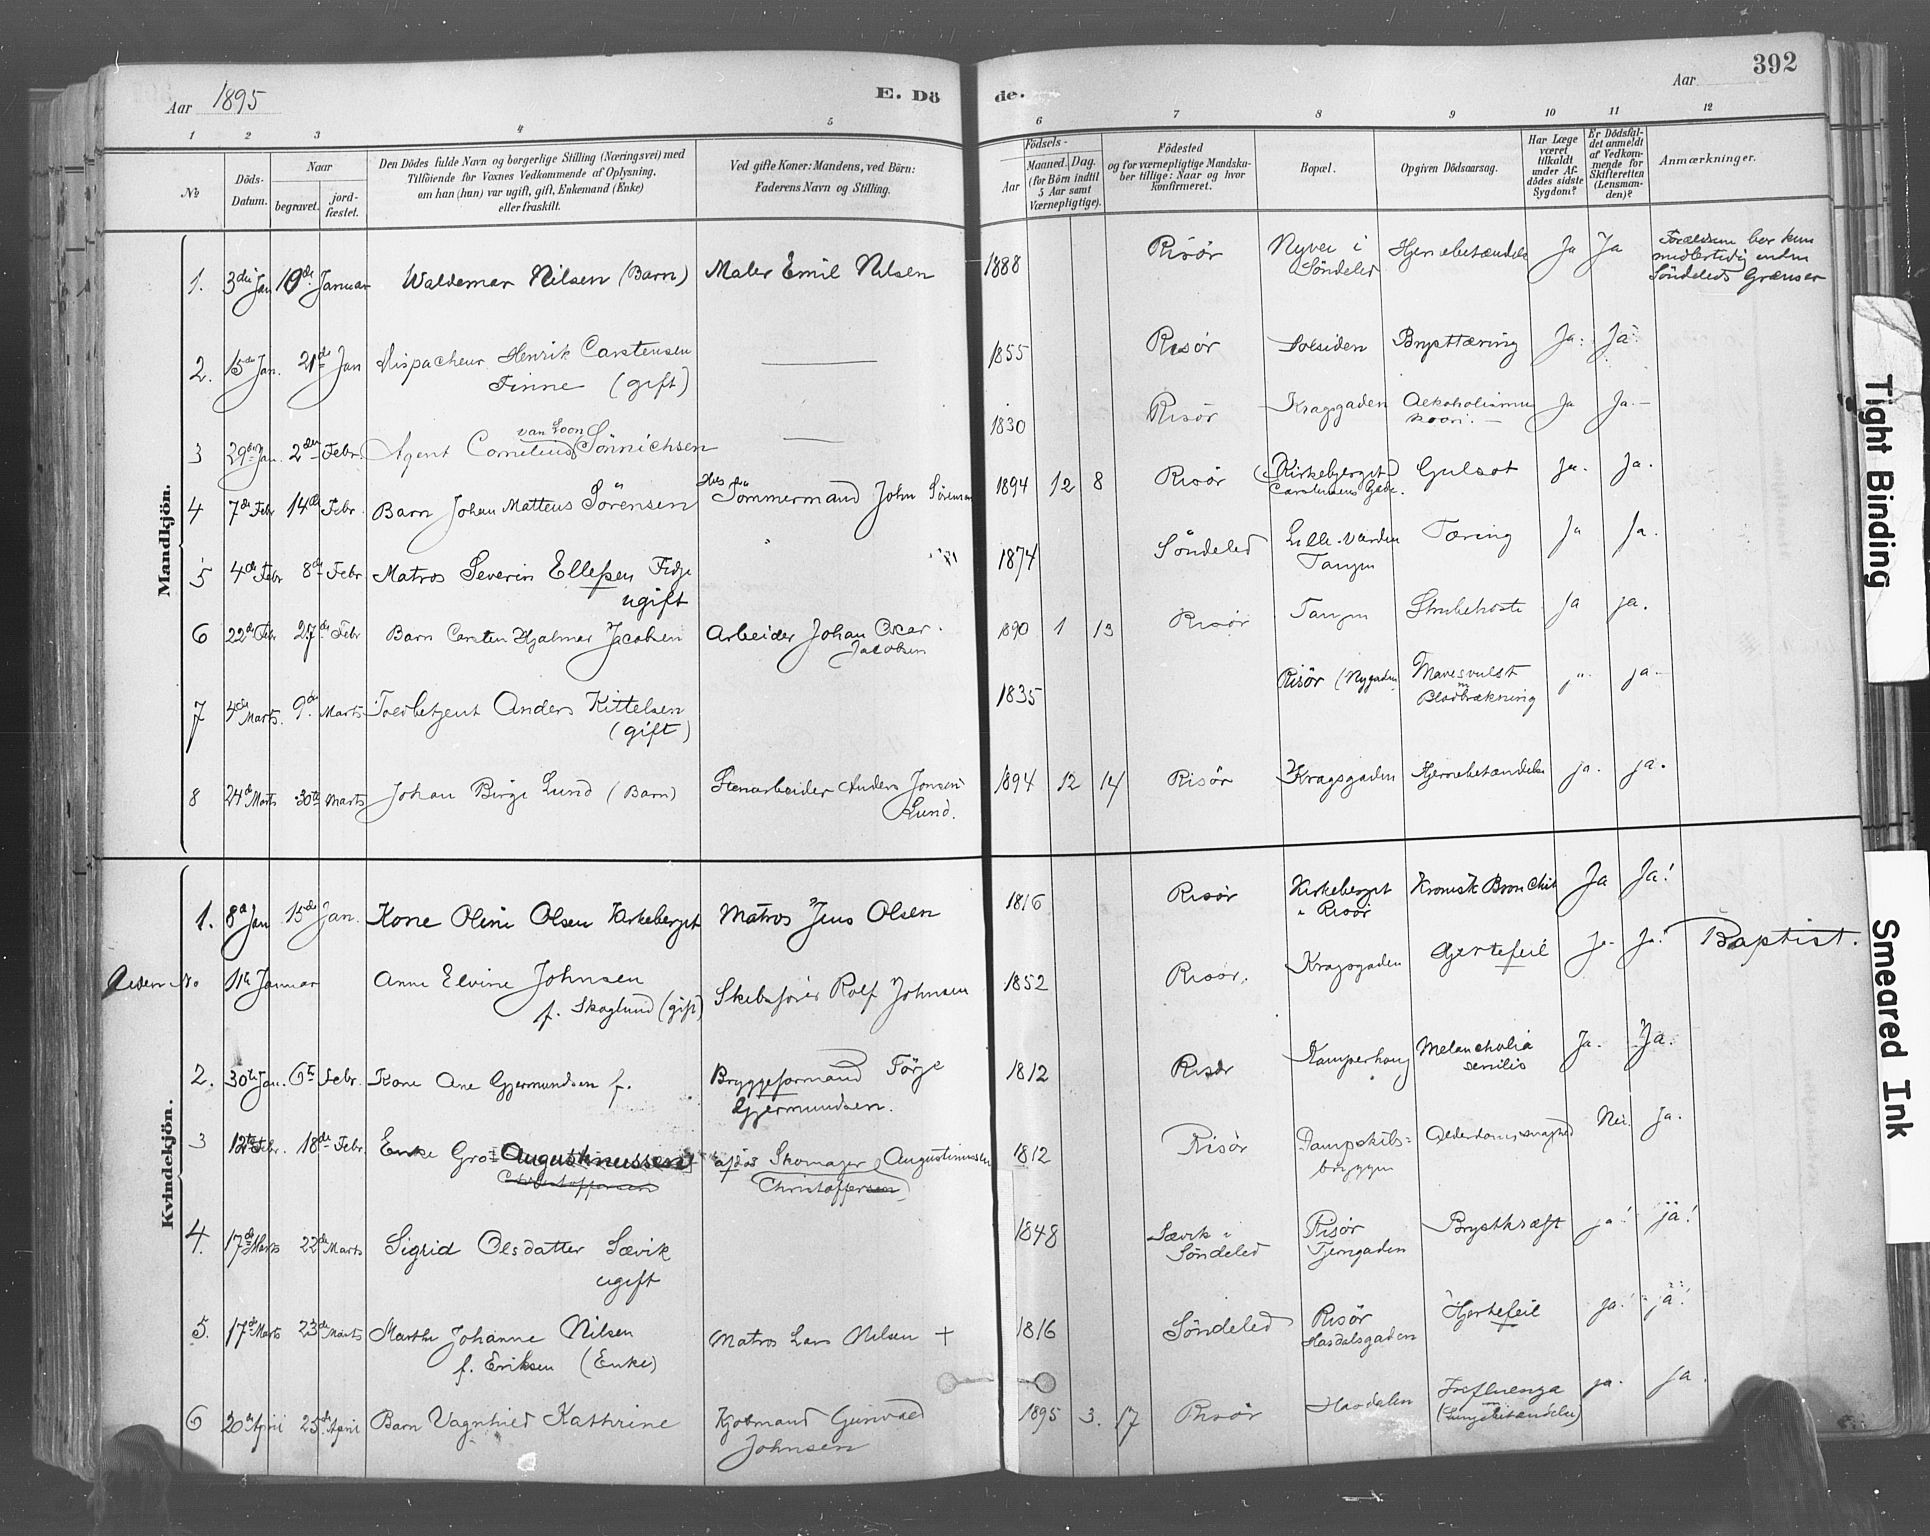 Aar 1895
E. Dö
de.
Aar
392
1 2 3 4 5 6 7 8 9 10 11 12
№
Döds-Datum.
Naar
begravet.
jord-fæstet.
Den Dödes fulde Navn og borgerlige Stilling (Næringsvei) med
Tilföiende for Voxnes Vedkommende af Oplysning,
om han (hun) var ugift, gift, Enkemand (Enke)
eller fraskilt.
Ved gifte Koner: Mandens, ved Börn:
Faderens Navn og Stilling.
Födsels-
Aar
Maaned. Dag.
(for Börn indtil
5 Aar samt
Værnepligtige).
Födested
og for værnepligtige Mandska-
ber tillige: Naar og hvor
konfirmeret.
Bopæl.
Opgiven Dödsaarsag.
Har Læge
været
tilkaldt
under Af-
dödes sidste
Sygdom?
Er Dödsfal-
det anmeldt
af Vedkom-
mende for
Skifteretten
(Lensman-
den)?
Anmærkninger.
Mandkjön.
1. 3die Jan 10de Januar Waldemar Nilsen (Barn) Maler Emil Nilsen 1888 Risör Nyvei i Söndeled Hjernebetændelse Ja Ja Forældrene bor kun
midlertidig inden
Söndeleds Grænser
2. 15de Jan. 21de Jan Dispacheur Henrik Carstensen 1855 Risör Solsiden Brysttæring Ja. Ja.
Finne (gift)
3 29de Jan. 2den Febr. Agent Cornelius van Loon Sönnichsen 1830 Risör Kragsgaden Ja Ja.
4 7de Febr 14de Febr. Barn Johan Matteus Sörensen Tömmermand John Sörensen 1894 12 8 Risör Kirkebjerget Gulsot Ja. Ja.
Carstensens Gade.
5 4de Febr 8de Febr. Matros Severin Ellefsen Fidje 1874 Söndeled Lille-Varden Tæring Ja Ja.
ugift Tangen
6 22de Febr 27de Febr Barn Carsten Hjalmar Jacobsen Arbeider Johan Oscar 1890 1 13 Risör Tangen Strubehoste Ja ja.
Jacobsen
7 4de Marts. 9de Marts Toldbetjent Anders Kittelsen 1835 Risör (Nygaden Mavesvulst ja.
(gift) m Blodbrækning
8 24de Marts 30te Marts Johan Birge Lund (Barn) Stenarbeider Anders Jonsen 1894 12 14 Risör Kragsgaden Hjernebetændelse ja. ja.
Lund.
Kvindekjön.
1. 8de Jan 15de Jan. Kone Oline Olsen Kirkeberget Matros Jens Olsen 1816 Risör Kirkeberget Kronisk Bronchit Ja Ja!
i Risör
Uden No 11te Januar Anne Elvine Johnsen Skibsförer Rolf Johnsen 1852 Risör. Kragsgaden Hjertefeil Ja. Ja. Baptist.
f. Skoglund (gift)
2. 30te Jan. 6te Febr. Kone Ane Gjermundsen f. Bryggeformand Törge 1812 Risör Kamperhoug Melancholia Ja. Ja.
Gjermundsen. senilis
3 12te Febr. 18de Febr. Enke Gro Augustinussen afdöd Skomager Augustinussen 1812 Risör Dampskibs- Alderdomssvaghed Nei. Ja.
Christoffersen Christoffersen bryggen
4. 17de Marts 22de Marts Sigrid Olsdatter Sævik 1848 Sævik i Söndeled Risör Brystkræft ja! ja!
ugift Tjerngaden
5. 17de Marts 23de Marts Marthe Johanne Nilsen Matros Lars Nilsen + 1816 Söndeled Risör Hjertefeil ja! ja!
f. Eriksen (Enke) Hasdalsgaden
6 20de April 25de April Barn Vagnhild Kathrine Kjöbmand Gunvald 1895 3. 17 Risör Hasdalen Influenza ja. ja.
Johnsen (Lungebetændelse)
Tight Binding
Smeared Ink